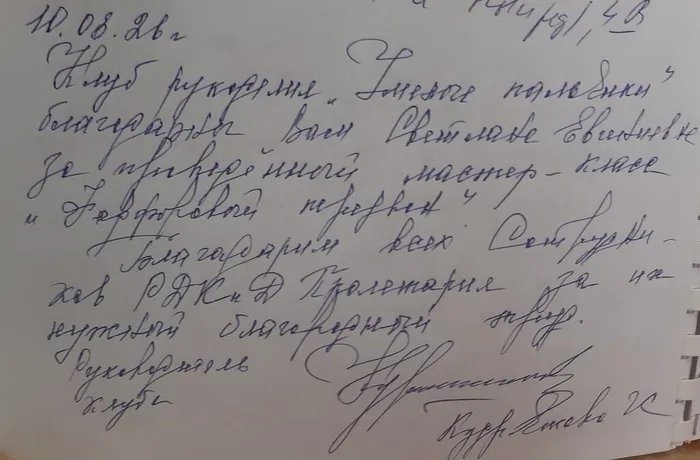 10.08.26 г
Клуб рукоделия "Умелые пальчики"
благодарны Вам Светлане Евгеньевне
за проведённый мастер-класс
"Фарфоровый перезвон"
Благодарим всех Сотрудни-
ков РДКиД Пролетария за их
нужный благородный труд.
Руководитель
клуба